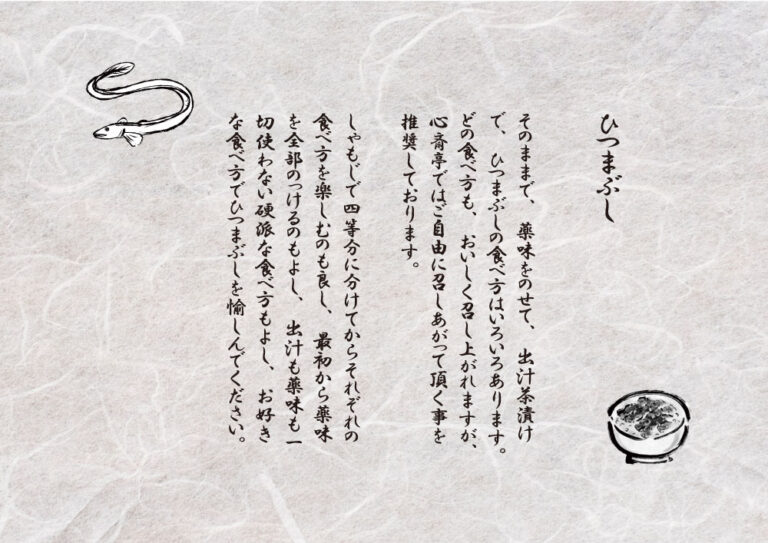 ひつまぶし
そのままで、薬味をのせて、出汁茶漬け
で、ひつまぶしの食べ方はいろいろあります。
どの食べ方も、おいしく召し上がれますが、
心斎亭ではご自由に召しあがって頂く事を
推奨しております。
しゃもじで四等分に分けてからそれぞれの
食べ方を楽しむのも良し、最初から薬味
を全部のっけるのもよし、出汁も薬味も一
切使わない硬派な食べ方もよし、お好き
な食べ方でひつまぶしを愉しんでください。